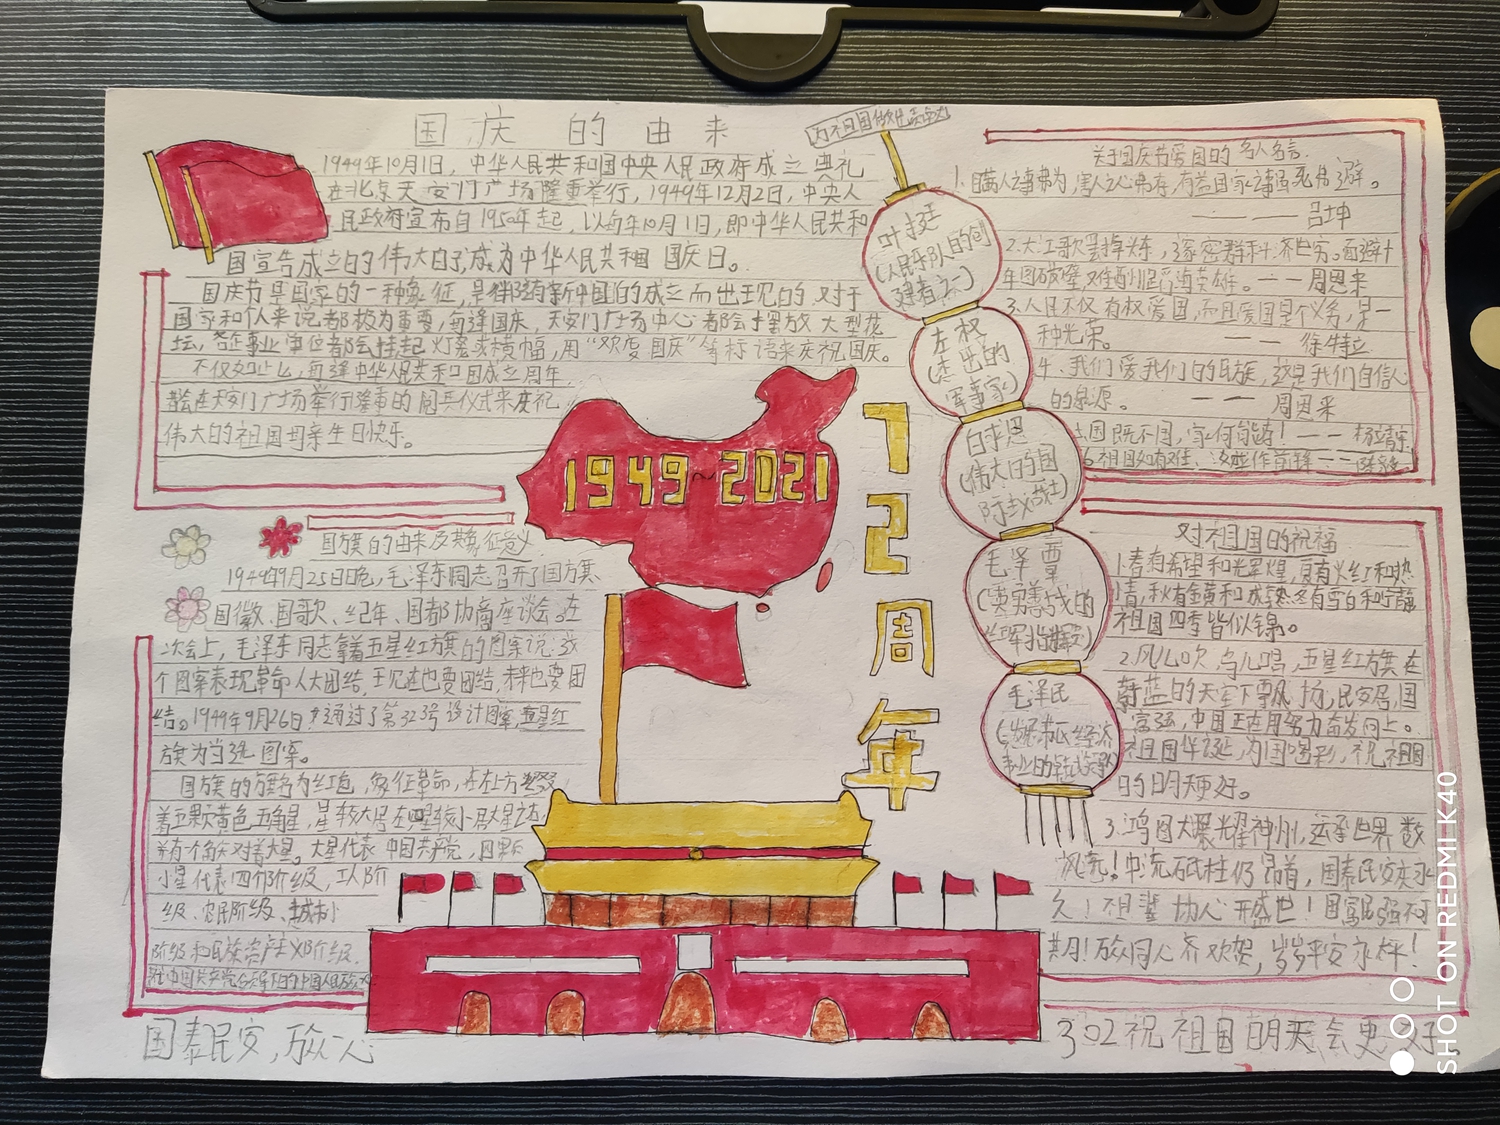 国庆的由来
1949年10月1日，中华人民共和国中央人民政府成立典礼
在北京天安门广场隆重举行，1949年12月2日，中央人
民政府宣布自1950年起，以每年10月1日，即中华人民共和
国宣告成立的伟大日子，成为中华人民共和国国庆日。
国庆节是国家的一种象征，是伴随着新中国的成立而出现的 对于
国家和个人来说都极为重要，每逢国庆，天安门广场中心都会摆放大型花
坛，各企事业单位都会挂起灯笼或横幅，用“欢度国庆”等标语来庆祝国庆。
不仅如此，每逢中华人民共和国成立周年，
都会在天安门广场举行隆重的阅兵仪式来庆祝
伟大的祖国母亲生日快乐。
1949~2021
72周年
国旗的由来及其象征意义
1949年9月25日晚，毛泽东同志召开了国旗、
国徽、国歌、纪年、国都协商座谈会。在
次会上，毛泽东同志拿着五星红旗的图案说：
个图案表现革命人大团结，现在也要团结，未来也要团
结。1949年9月26日 通过了第323号设计图案，五星红
旗为当选图案。
国旗的旗面为红色，象征革命，在左上方
着五颗黄色五角星，
并有一个角尖对着大星。大星代表中国共产党，四颗
小星代表四个阶级，工人阶
级、农民阶级、城市小
阶级和民族资产
国泰民安，放心
叶挺
（人民军队的创
建者之一）
左权
（杰出的
军事家）
白求恩
（伟大的国
际主义战士）
毛泽覃
（英勇善战的
红军指挥
毛泽民
关于国庆节爱国的名人名言
1.瞒人之事弗为，害人之心弗存，有益国家之事虽死弗避。
—— —— 吕坤
2.大江歌罢掉头，邃密群科济世穷。面壁十
年图破壁，难酬蹈海亦英雄。—— 周恩来
3.人民不仅有权爱国，而且爱国是个义务，是一
种光荣。 —— 徐特立
4.我们爱我们的民族，这是我们自信心
的泉源。 —— 周恩来
6.祖国如有难，汝应作前锋 ——
对祖国的祝福
2.风儿吹，鸟儿鸣，五星红旗在
蔚蓝的天空下飘扬，民安居，国
富强，中国正在用努力奋发向上。
祖国华诞，为国喝彩，祝祖国
的明天更好。
3.鸿图大展耀神州，运承世界数
风流！中流砥柱仍昂首，国泰民安庆永
久！
共同！万众同心齐欢贺，岁岁平安永太平！
302祝祖国明天会更好。
SHOT ON REDMI K40